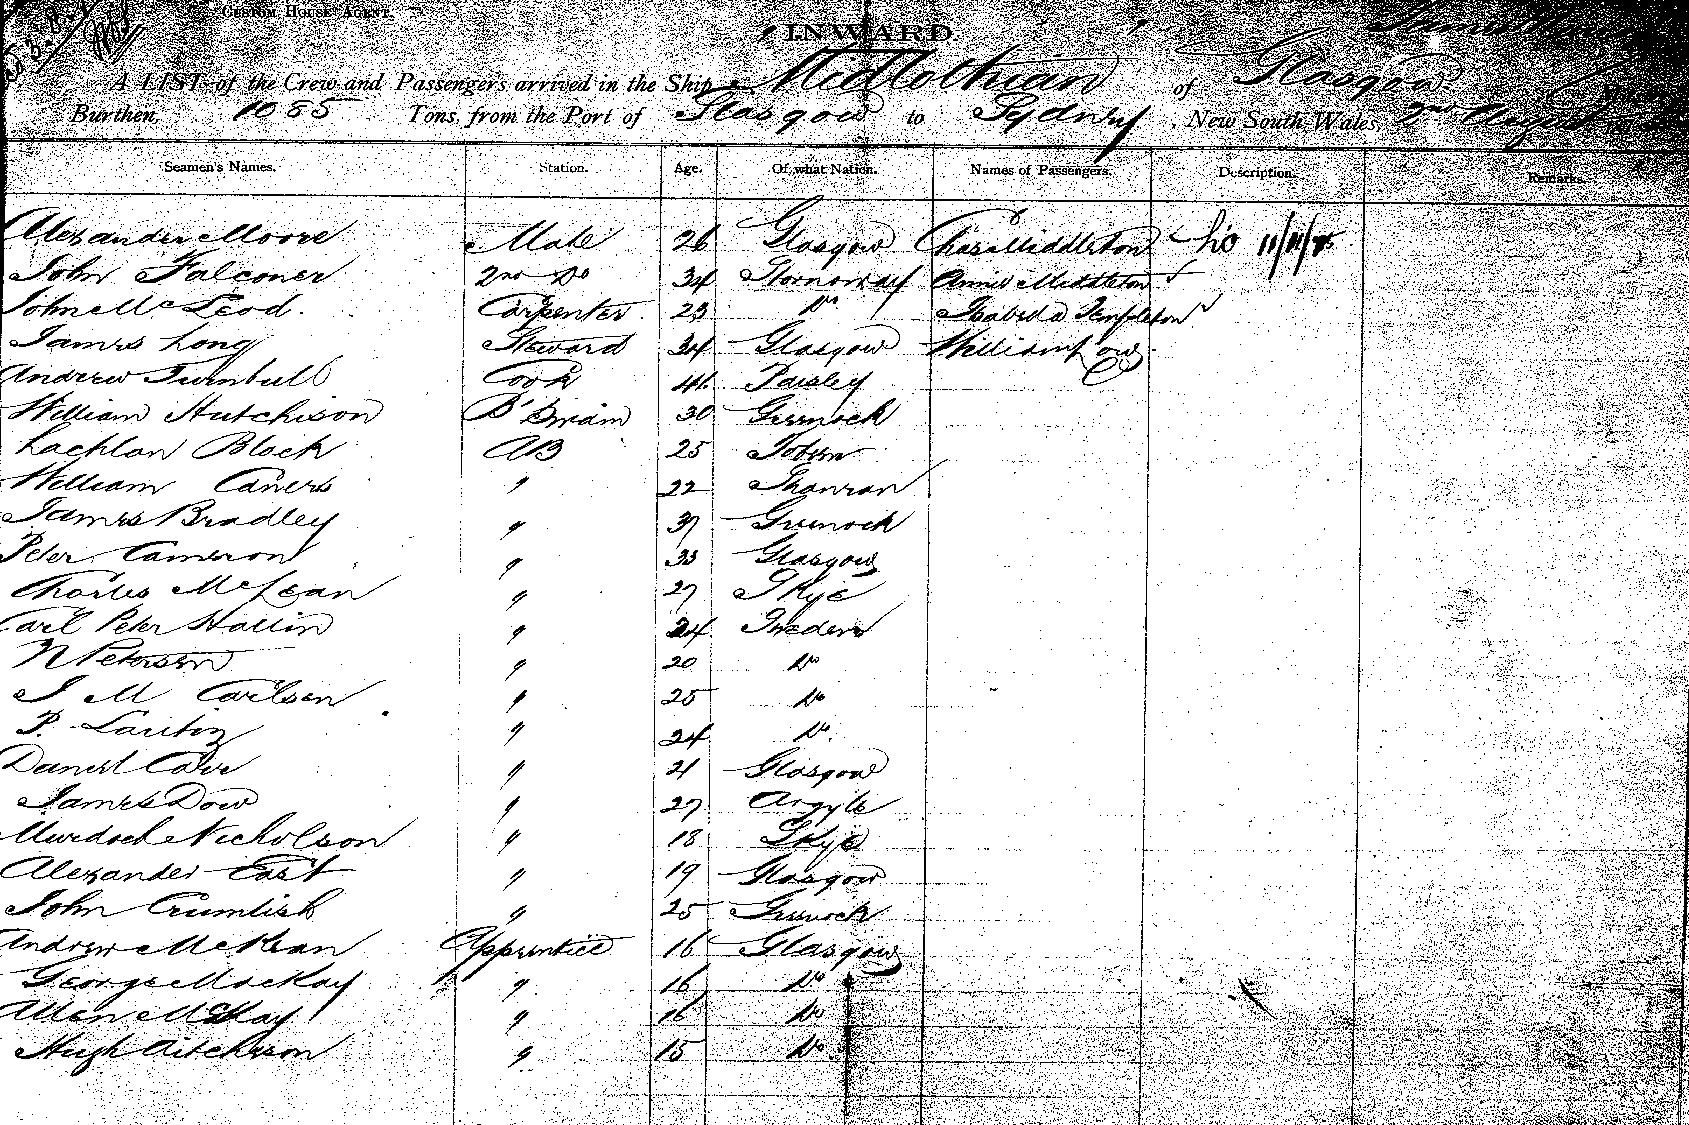 CUSTOM HOUSE AGENT.
INWARD.
A LIST of the Crew and Passengers arrived in the Ship Midlothian of Glasgow
Burthen, 1055 Tons, from the Port of Glasgow to Sydney, New South Wales, 2nd August
Seamen's Names. Station. Age. Of what Nation. Names of Passengers. Description. Remarks.
Alexander Moore Mate 26 Glasgow Chas Middleton
John Falconer 2nd Do 34 Stornoway Annie Middleton
John McLeod Carpenter 23 Do Isabella Templeton
James Long Steward 34 Glasgow William
Andrew Turnbull Cook 41 Paisley
William Hutchison B'Swain 30 Greenock
Lachlan Black AB 25
William " 22
James Bradley " 37 Greenock
Peter Cameron " 33 Glasgow
Charles McLean " 27 Skye
Carl Peter " 24 Sweden
N Petersen " 20 Do
J M Carlsen " 25 Do
P. " 24 Do
Daniel " 21 Glasgow
James Dow " 27 Argyle
Murdoch Nicholson " 18 Skye
Alexander East " 19 Glasgow
John Crumlish " 25 Greenock
Andrew McKean Apprentice 16 Glasgow
George MacKay " 16 Do
Allan " 16 Do
Hugh Aitchison " 15 Do